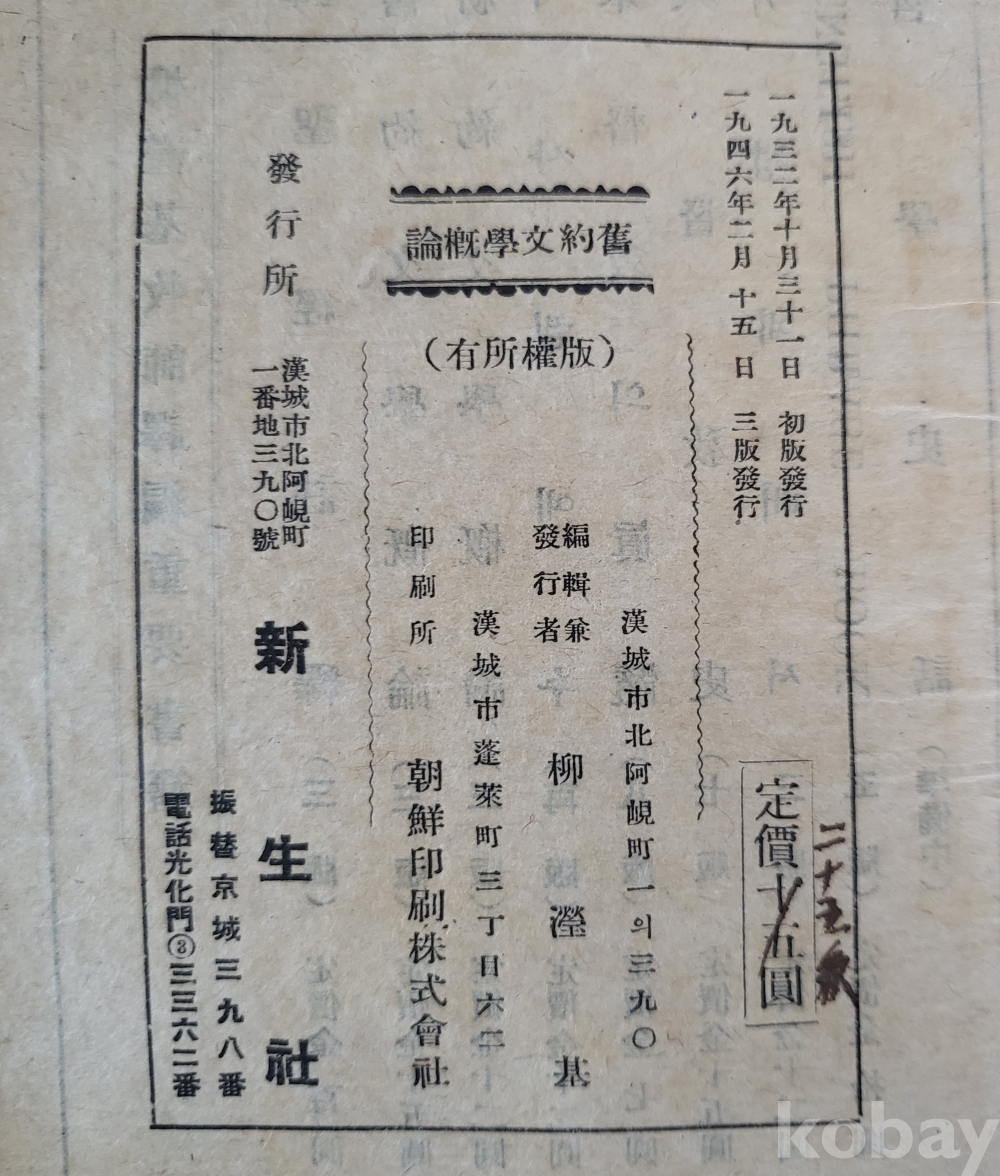 一九三二年十月三十一日 初版發行
一九四六年二月十五日 三版發行
定價十五圓
二十五
舊約文學槪論
(版權所有)
漢城市北阿峴町一의三九〇
編輯兼
發行者 柳瀅基
漢城市蓬萊町三丁目六二
印刷所 朝鮮印刷株式會社
發行所
漢城市北阿峴町
一番地三九〇號
新生社
振替京城三九八番
電話光化門③三三六二番
kobay